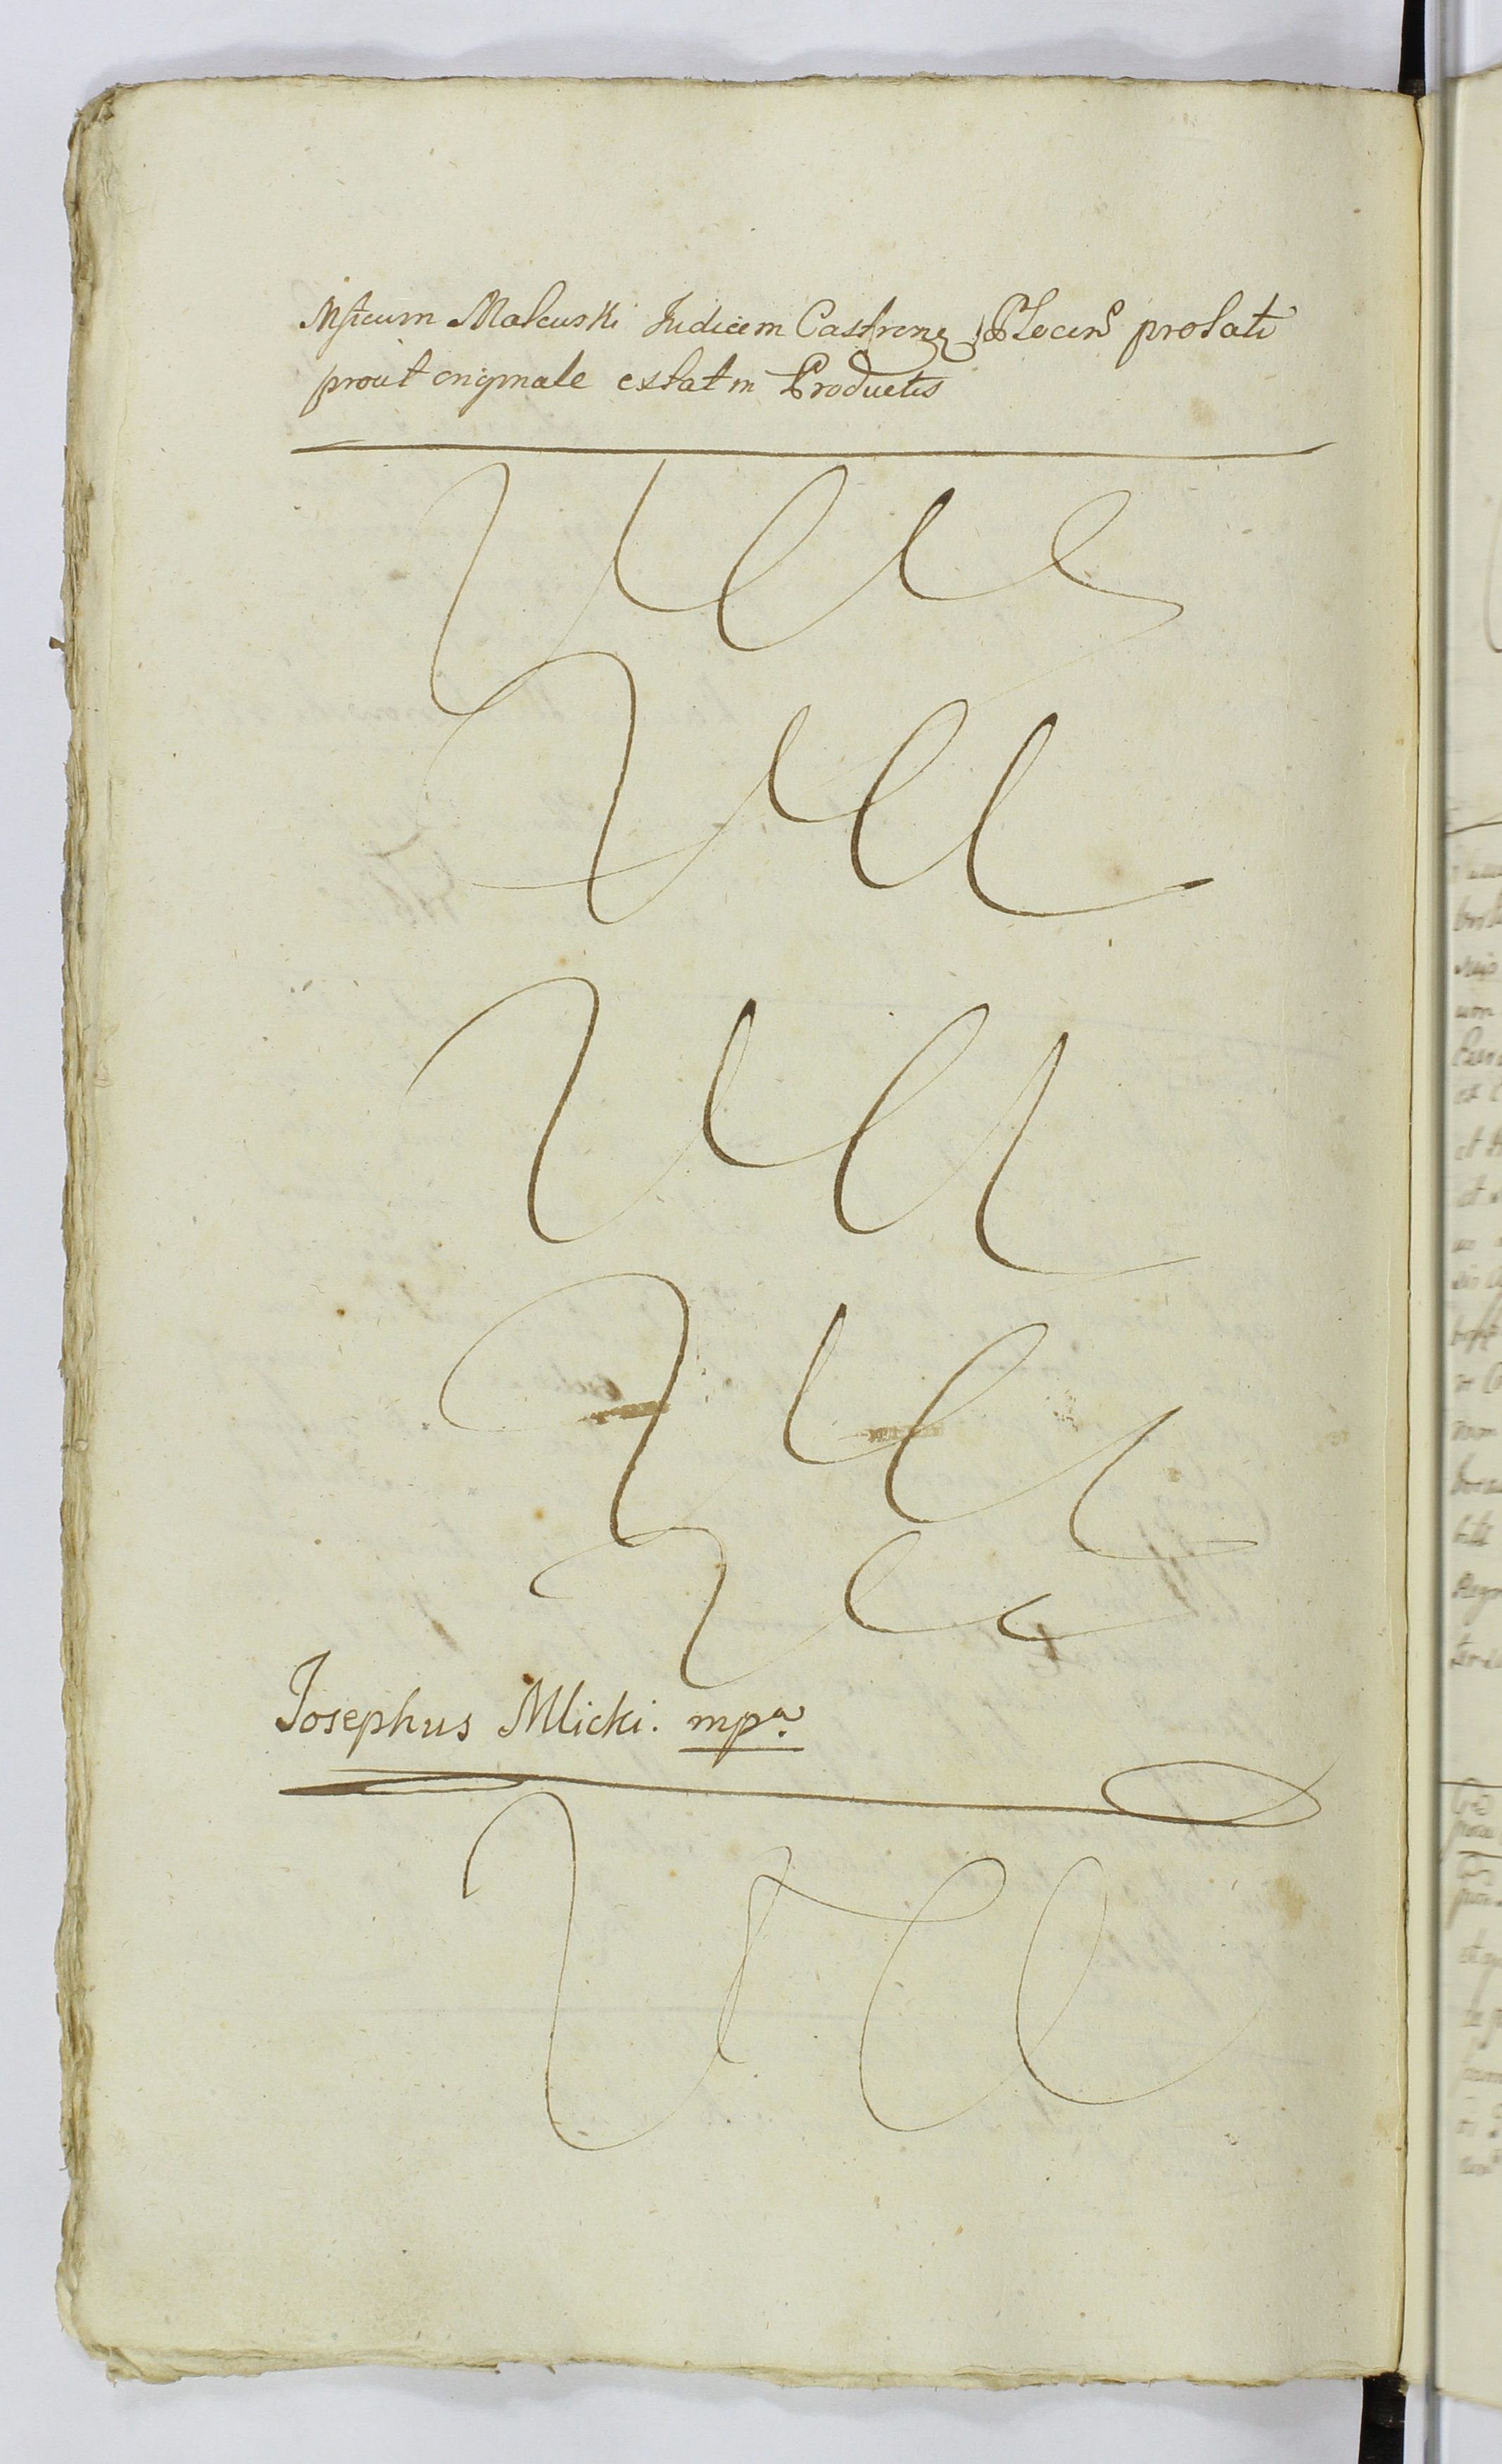 Msicum Malewski Iudicem Castrens Plocens prolati
prout originale extat in Productis
Iosephus Mlicki. mpa.